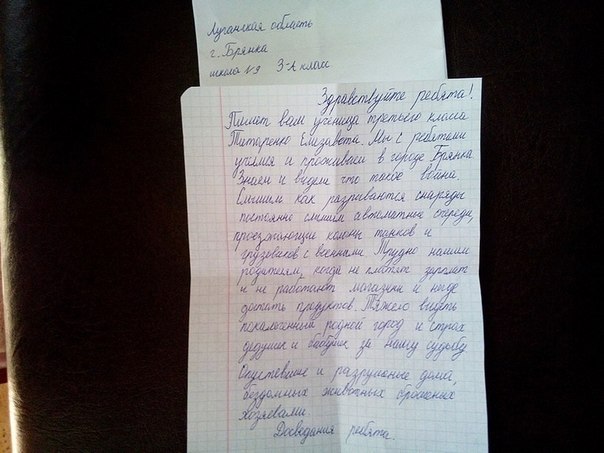 Луганская область
г. Брянка
школа №9 3-А класс
Здравствуйте ребята!
Пишет вам ученица третьего класса
Титаренко Елизавета. Мы с ребятами
учимся и проживаем в городе Брянка
Знаем и видели что такое война.
Слышим как разрываются снаряды
постоянно слышим автоматные очереди,
проезжающие колоны танков и
грузовиков с военными. Трудно нашим
родителям, когда не платят зарплат
и не работают магазины и негде
достать продуктов. Тяжело видеть
покалеченный родной город и страх
дедушек и бабушек за нашу судьбу
Опустевшие и разрушеные дома,
бездомных животных брошеных
хозяевами.
Досведания ребята.